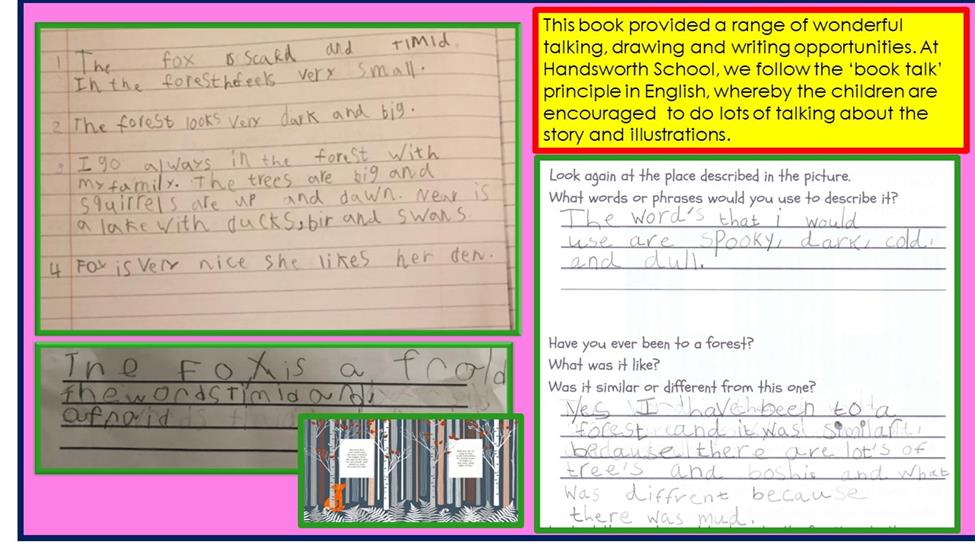 1 The fox is scaRd and TIMID.
In the forest he feels very small.
2 The forest looks very dark and big.
3 I go always in the forest with
my family. The trees are big and
squirrels are up and dawn. Near is
a lake with ducks, bir and swans.
4 Fox is very nice she likes her den.
The Fox is a frold
the words Timid and
afraid
This book provided a range of wonderful
talking, drawing and writing opportunities. At
Handsworth School, we follow the ‘book talk’
principle in English, whereby the children are
encouraged to do lots of talking about the
story and illustrations.
Look again at the place described in the picture.
What words or phrases would you use to describe it?
The word's that i would
use are spooky, dark, cold,
and dull.
Have you ever been to a forest?
What was it like?
Was it similar or different from this one?
Yes I have been to a
forest and it was similar
because there are lot's of
tree's and boshis and what
was diffrent because
there was mud.